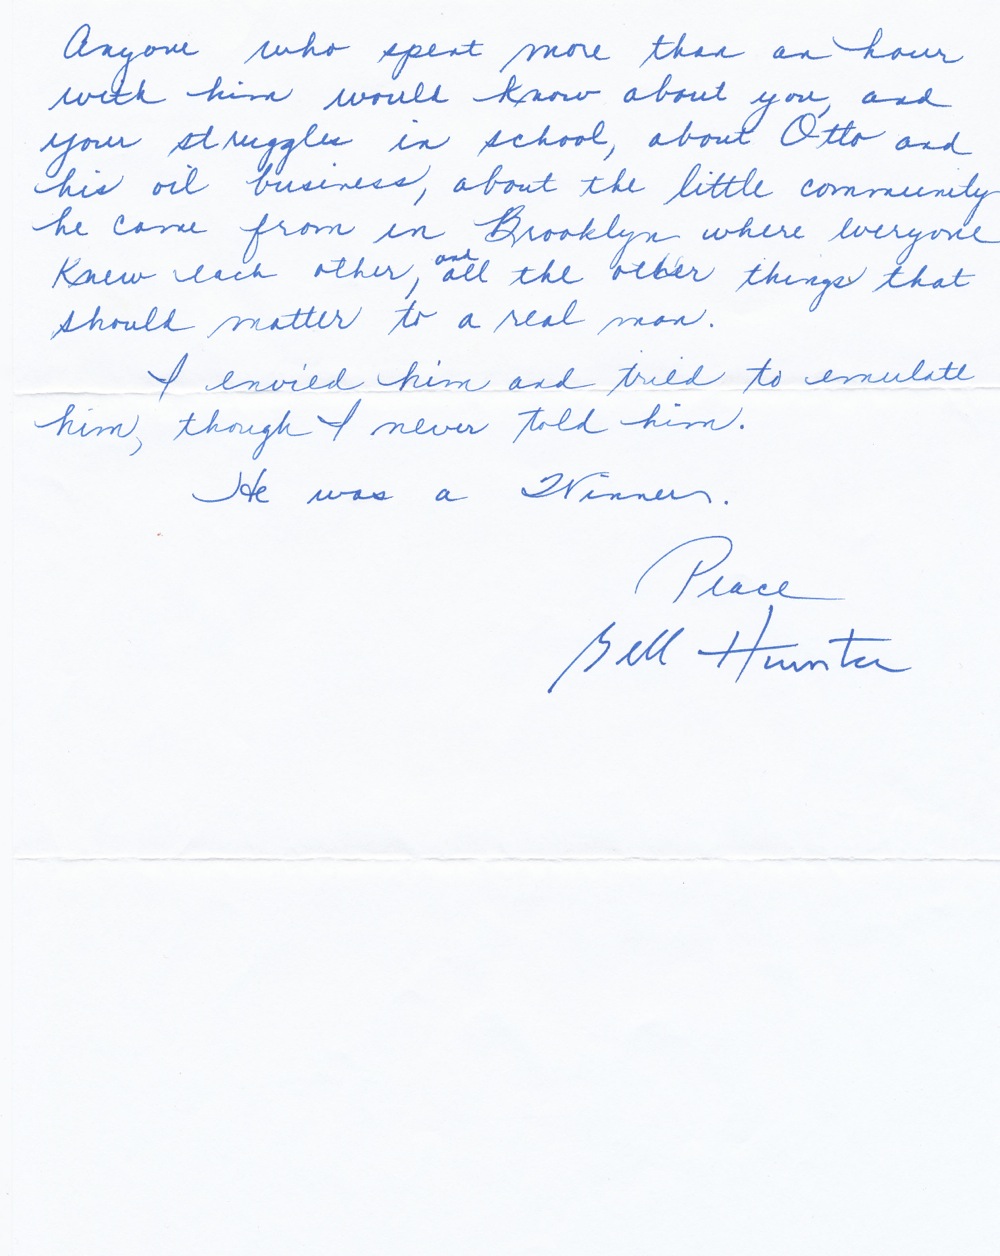 Anyone who spent more than an hour
with him would know about you, and
your struggles in school, about Otto and
his oil business, about the little community
he came from in Brooklyn where everyone
knew each other, and all the other things that
should matter to a real man.
I envied him and tried to emulate
him, though I never told him.
He was a Winner.
Peace
Bill Hunter